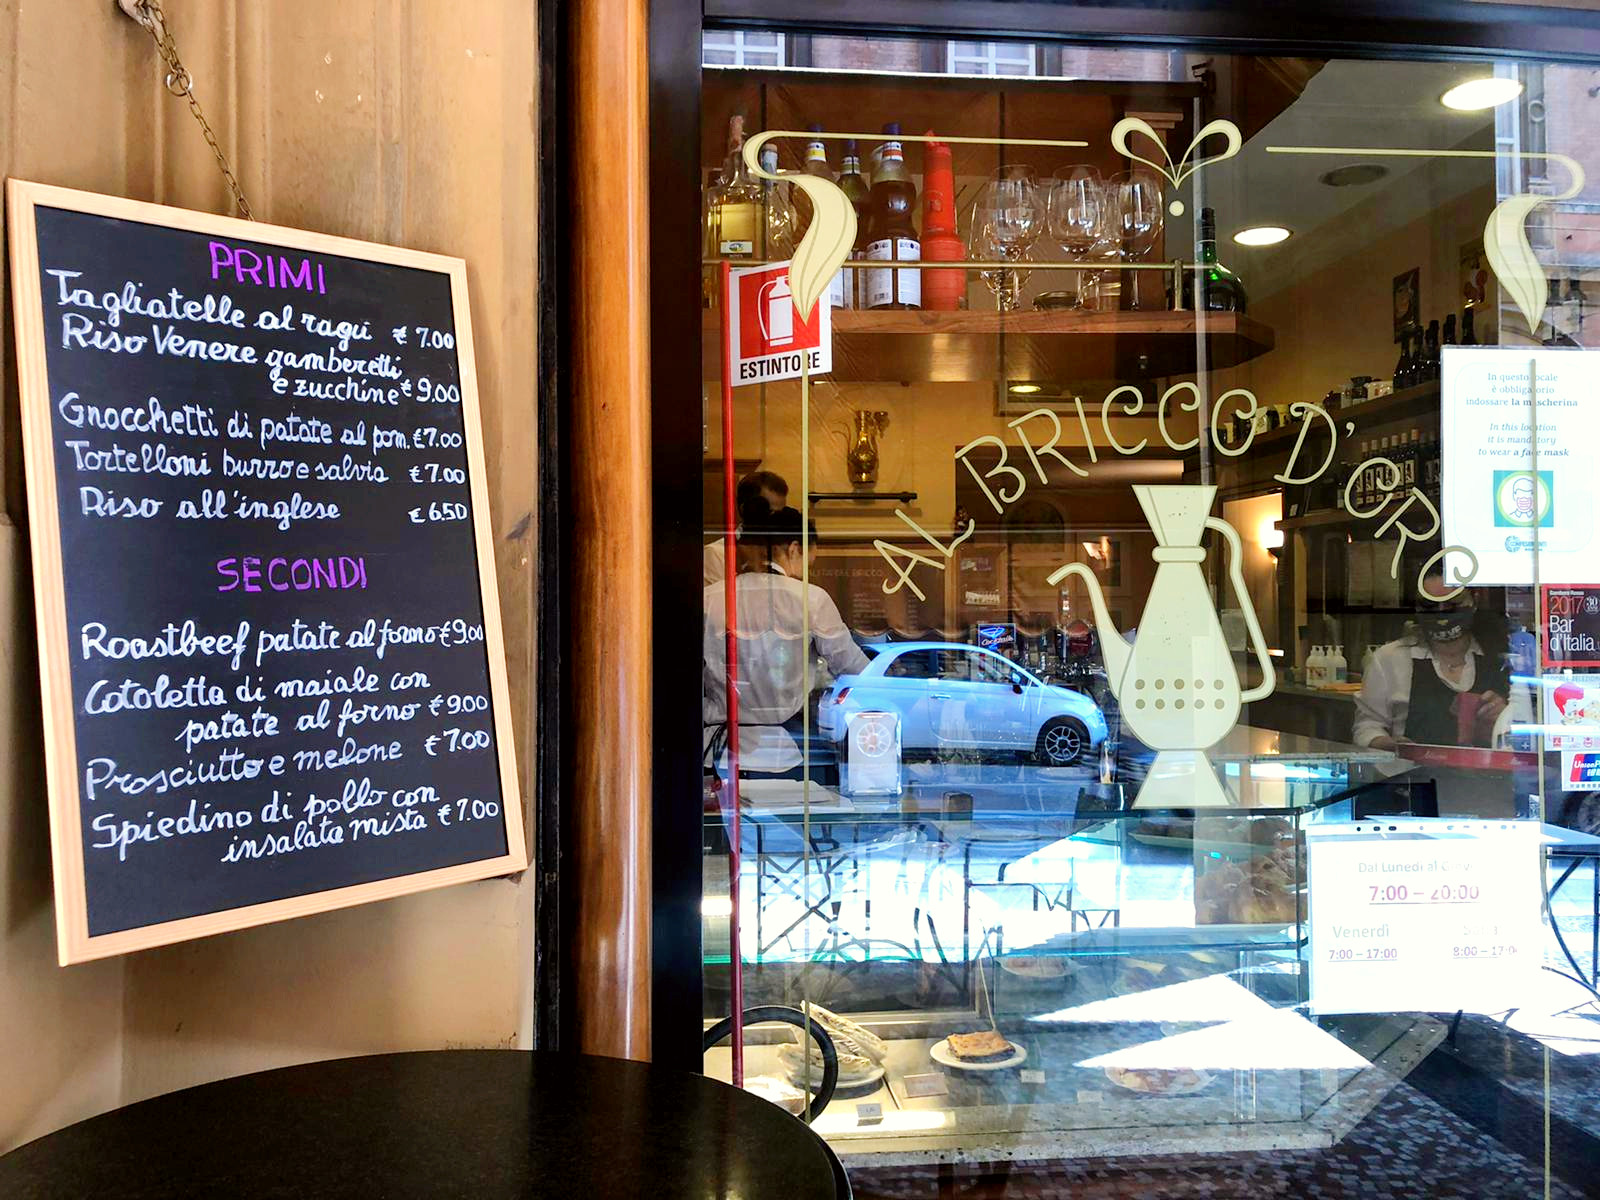 PRIMI
Tagliatelle al ragù € 7.00
Riso Venere gamberetti
e zucchine € 9.00
Gnocchetti di patate al pom. € 7.00
Tortelloni burro e salvia € 7.00
Riso all'inglese € 6.50
SECONDI
Roastbeef patate al forno € 9.00
Cotoletta di maiale con
patate al forno € 9.00
Prosciutto e melone € 7.00
Spiedino di pollo con
insalata mista € 7.00
ESTINTORE
AL BRICCO D'ORO
In questo locale
è obbligatorio
indossare la mascherina
In this location
it is mandatory
to wear a face mask
Gambero Rosso
2017 30
Bar
d'Italia
UnionPay
Cocktails
Dal Lunedì al
7:00 – 20:00
Venerdì
7:00 – 17:00
8:00 – 17:00